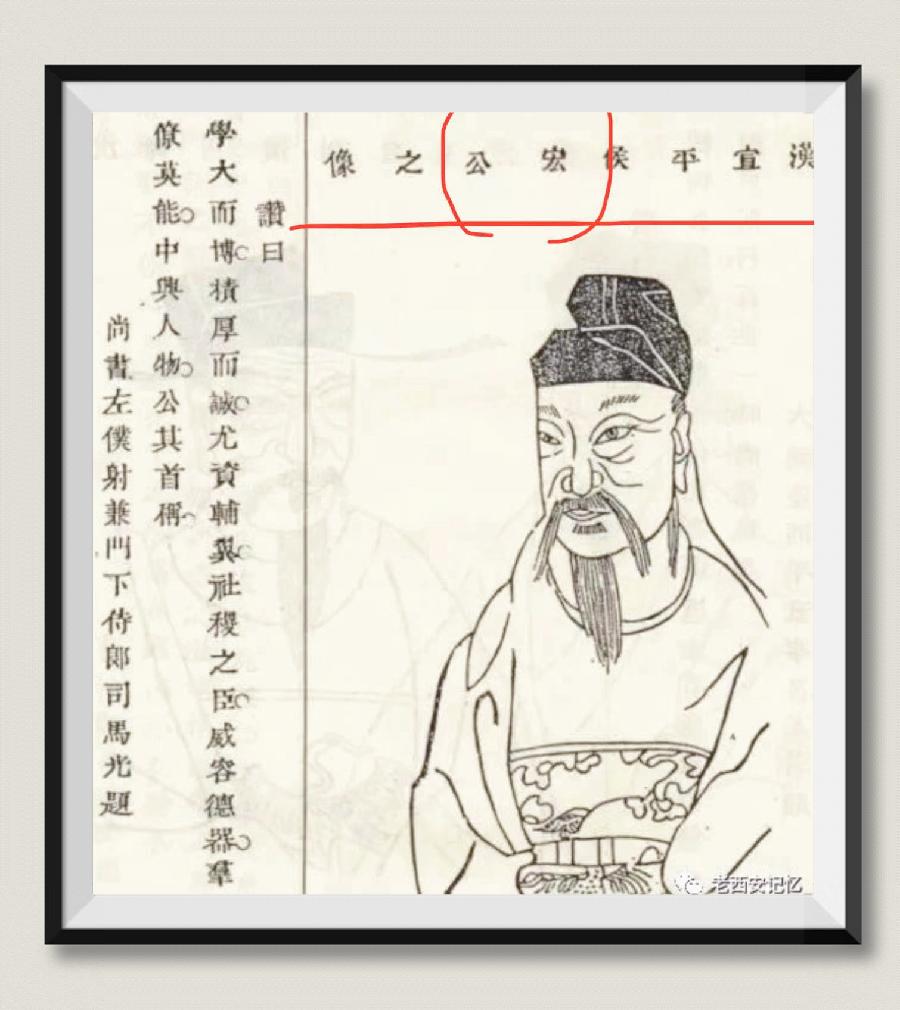 漢宣平侯宏公之像
讚曰
學大而博積厚而誠尤資輔翼社稷之臣威容德器羣
僚英能中興人物公其首稱
尚書左僕射兼門下侍郎司馬光題
老西安记忆